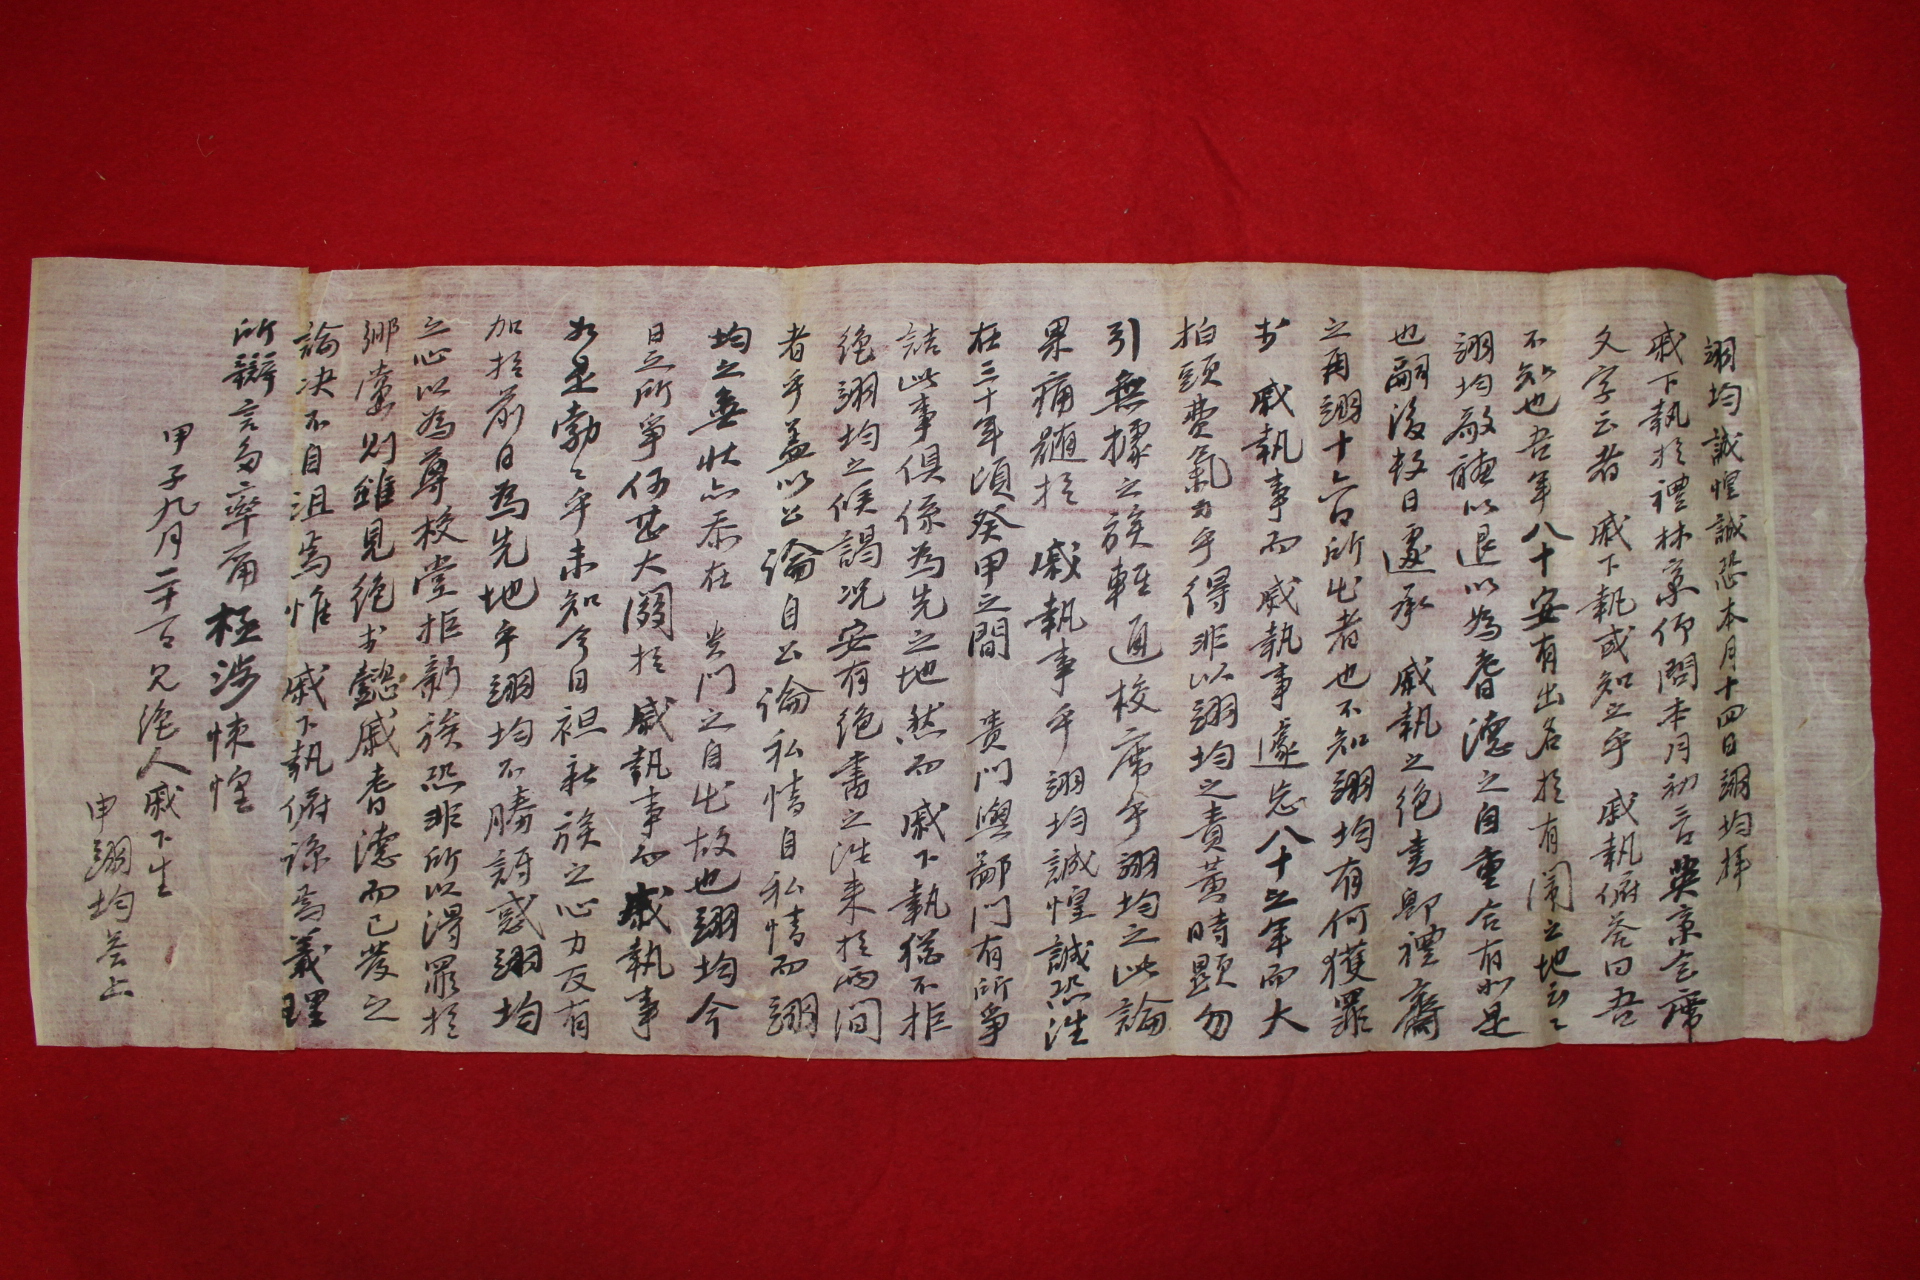 翊均誠惶誠恐本月十四日翊均拜
戚下執於禮林京仰問本月初吉英京会席
文字云者戚下執或知之乎戚執俯答曰吾
不知也吾年八十安有出名於有閙之地云々
翊均敬聽以退以為耆德之自重合有如是
也嗣後数日遽承戚執之絶書卽禮齋
之再翊十六日所出者也不知翊均有何獲罪
於戚執事而戚執事遽忘八十之年而大
拍頭費氣力乎得非以翊均之責黃時顯勿
引無據之族輕通校席乎翊均之此論
果痛髓於戚執事乎翊均誠惶誠恐往
在三十年頃癸甲之間貴門與鄙門有所爭
詰此事俱係為先之地然而戚下執猶不拒
絶翊均之候謁况安有絶書之往来於兩間
者乎盖以公論自公論私情自私情而翊
均之無狀亦忝在貴門之自出故也翊均今
日之所爭何甚大關於戚執事而戚執事
如是勃々乎未知今日袒新族之心力反有
加於前日為先地乎翊均不勝訝惑翊均
之心以為尊校堂拒新族恐非所以得罪於
鄉黨則雖見絶於懿戚耆德而已發之
論决不自沮焉惟戚下執俯諒焉義理
所辯言多率爾極涉悚惶
甲子九月二十一日見絶人戚下生
申翊均答上